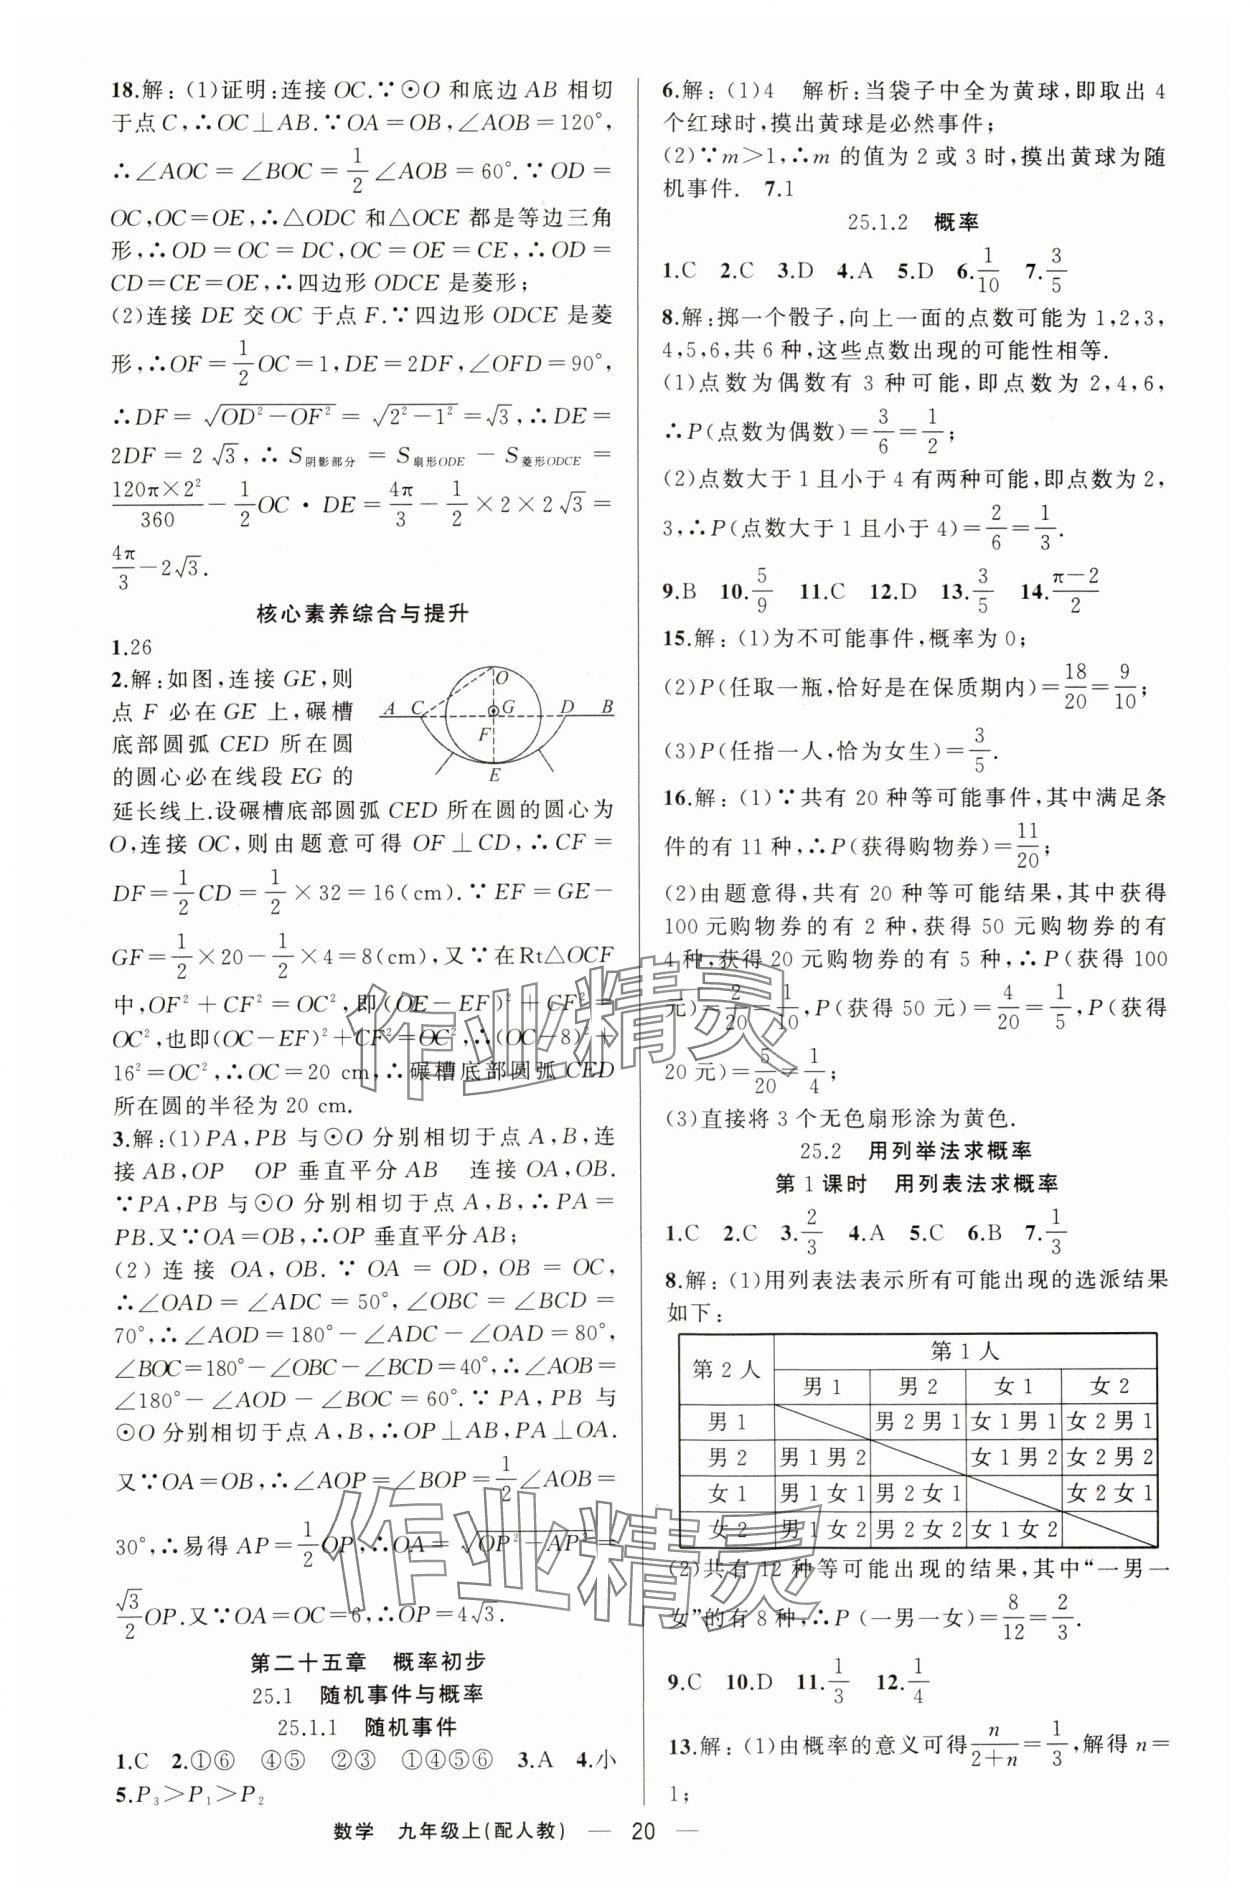 18.解：(1)证明：连接 OC.∵⊙O 和底边 AB 相切
于点 C，∴OC⊥AB.∵OA=OB，∠AOB=120°，
∴∠AOC=∠BOC=1/2∠AOB=60°.∵OD=
OC，OC=OE，∴△ODC 和△OCE 都是等边三角
形，∴OD=OC=DC，OC=OE=CE，∴OD=
CD=CE=OE，∴四边形 ODCE 是菱形；
(2)连接 DE 交 OC 于点 F.∵四边形 ODCE 是菱
形，∴OF=1/2OC=1，DE=2DF，∠OFD=90°，
∴DF=√(OD²-OF²)=√(2²-1²)=√3，∴DE=
2DF=2√3，∴S阴影部分=S扇形ODE-S菱形ODCE=
120π×2²/360-1/2OC·DE=4π/3-1/2×2×2√3=
4π/3-2√3.
核心素养综合与提升
1.26
2.解：如图，连接 GE，则
点 F 必在 GE 上，碾槽
底部圆弧 CED 所在圆
的圆心必在线段 EG 的
A C O G D B F E
延长线上.设碾槽底部圆弧 CED 所在圆的圆心为
O，连接 OC，则由题意可得 OF⊥CD，∴CF=
DF=1/2CD=1/2×32=16(cm).∵EF=GE-
GF=1/2×20-1/2×4=8(cm)，又∵在Rt△OCF
中，OF²+CF²=OC²，即(OE-EF)²+CF²=
OC²，也即(OC-EF)²+CF²=OC²，∴(OC-8)²+
16²=OC²，∴OC=20 cm，∴碾槽底部圆弧 CED
所在圆的半径为 20 cm.
3.解：(1)PA，PB 与⊙O 分别相切于点 A，B，连
接 AB，OP　OP 垂直平分 AB　连接 OA，OB.
∵PA，PB 与⊙O 分别相切于点 A，B，∴PA=
PB.又∵OA=OB，∴OP 垂直平分 AB；
(2)连接 OA，OB.∵OA=OD，OB=OC，
∴∠OAD=∠ADC=50°，∠OBC=∠BCD=
70°，∴∠AOD=180°-∠ADC-∠OAD=80°，
∠BOC=180°-∠OBC-∠BCD=40°，∴∠AOB=
∠180°-∠AOD-∠BOC=60°.∵PA，PB 与
⊙O 分别相切于点 A，B，∴OP⊥AB，PA⊥OA.
又∵OA=OB，∴∠AOP=∠BOP=1/2∠AOB=
30°，∴易得 AP=1/2OP，∴OA=√(OP²-AP²)=
√3/2OP.又∵OA=OC=6，∴OP=4√3.
第二十五章　概率初步
25.1　随机事件与概率
25.1.1　随机事件
1.C　2.①⑥　④⑤　②③　①④⑤⑥　3.A　4.小
5.P₃>P₁>P₂
6.解：(1)4　解析：当袋子中全为黄球，即取出 4
个红球时，摸出黄球是必然事件；
(2)∵m>1，∴m 的值为 2 或 3 时，摸出黄球为随
机事件.　7.1
25.1.2　概率
1.C　2.C　3.D　4.A　5.D　6.1/10　7.3/5
8.解：掷一个骰子，向上一面的点数可能为 1，2，3，
4，5，6，共 6 种，这些点数出现的可能性相等.
(1)点数为偶数有 3 种可能，即点数为 2，4，6，
∴P(点数为偶数)=3/6=1/2；
(2)点数大于 1 且小于 4 有两种可能，即点数为 2，
3，∴P(点数大于 1 且小于 4)=2/6=1/3.
9.B　10.5/9　11.C　12.D　13.3/5　14.(π-2)/2
15.解：(1)为不可能事件，概率为 0；
(2)P(任取一瓶，恰好是在保质期内)=18/20=9/10；
(3)P(任指一人，恰为女生)=3/5.
16.解：(1)∵共有 20 种等可能事件，其中满足条
件的有 11 种，∴P(获得购物券)=11/20；
(2)由题意得，共有 20 种等可能结果，其中获得
100 元购物券的有 2 种，获得 50 元购物券的有
4 种，获得 20 元购物券的有 5 种，∴P(获得 100
元)=2/20=1/10，P(获得 50 元)=4/20=1/5，P(获得
20 元)=5/20=1/4；
(3)直接将 3 个无色扇形涂为黄色.
25.2　用列举法求概率
第 1 课时　用列表法求概率
1.C　2.C　3.2/3　4.A　5.C　6.B　7.1/3
8.解：(1)用列表法表示所有可能出现的选派结果
如下：
第 2 人　第 1 人
男 1　男 2　女 1　女 2
男 1　男 2 男 1　女 1 男 1　女 2 男 1
男 2　男 1 男 2　女 1 男 2　女 2 男 2
女 1　男 1 女 1　男 2 女 1　女 2 女 1
女 2　男 1 女 2　男 2 女 2　女 1 女 2
(2)共有 12 种等可能出现的结果，其中“一男一
女”的有 8 种，∴P(一男一女)=8/12=2/3.
9.C　10.D　11.1/3　12.1/4
13.解：(1)由概率的意义可得n/(2+n)=1/3，解得 n=
1；
数学　九年级上(配人教)　— 20 —
作业精灵
作业精灵